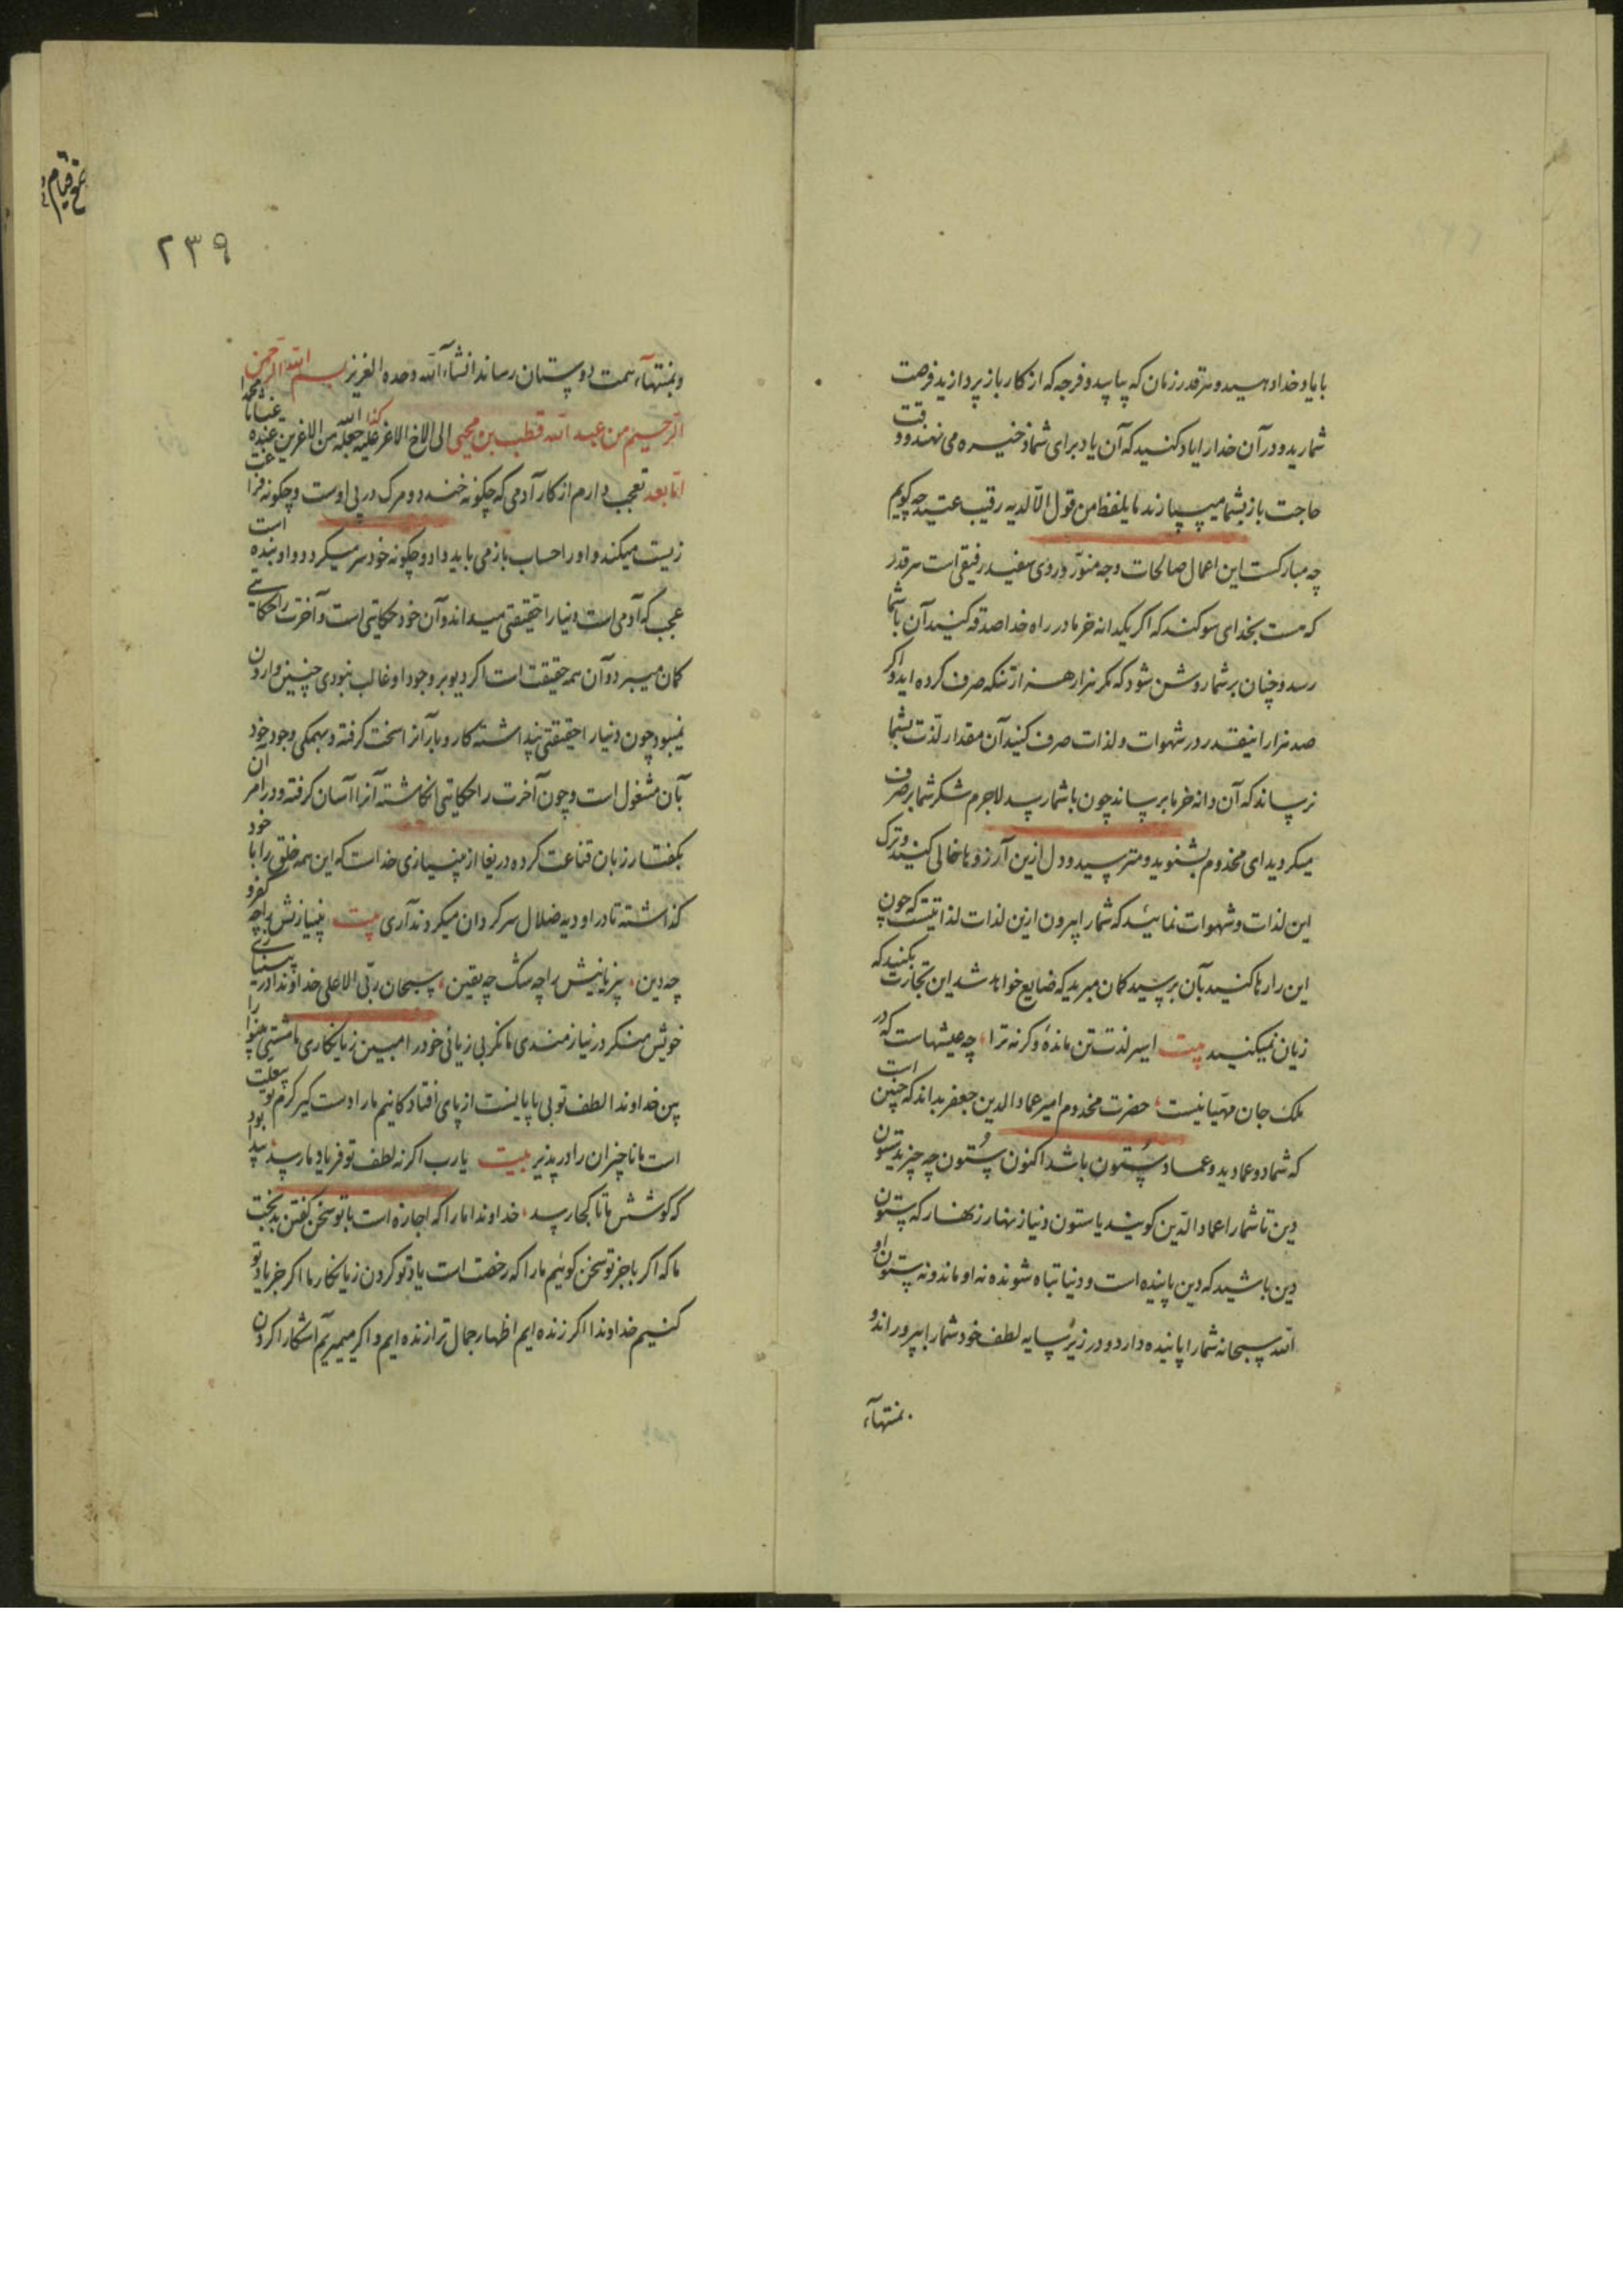 با یاد خدا دهید و هر قدر زمان که بیابید و فرجه که از کار باز پردازید فرصت
شمارید و در آن خدا را یاد کنید که آن یاد برای شما ذخیره می نهند و وقت
حاجت باز بشما میسپارند ما یلفظ من قول الا لدیه رقیب عتید چه گویم
چه مبارکست این اعمال صالحات وجه منور و روی سفید رفیقی است هر قدر
که هست بخدای سوگند که اگر یکدانه خرما در راه خدا صدقه کنید آن باشما
رسد و چنان بر شما روشن شود که مگر هزار هزار تنکه صرف کرده اید و اگر
صد هزار اینقدر در شهوات و لذات صرف کنید آن مقدار لذت بشما
نرساند که آن دانه خرما برساند چون باشما رسد لاجرم شکر شما بر صرف
میکردید ای مخدوم بشنوید و مترسید و دل ازین آرزوها خالی کنید و ترک
این لذات و شهوات نمائید که شما را بیرون ازین لذات لذاتیست که چون
این را رها کنید بآن برسید گمان مبرید که ضایع خواهد شد این تجارت بکنید که
زیان نمیکنید بیت اسیر لذت تن مانده وگرنه ترا ، چه عیشهاست که در
ملک جان مهیا نیست ، حضرت مخدوم امیر عماد الدین جعفر بداند که چنین است
که شما دو عمادید و عماد ستون باشد اکنون ستون چه چیزید ستون
دین تا شما را عماد الدین گویند یا ستون دنیا زنهار زنهار که ستون
دین باشید که دین پاینده است و دنیا تباه شونده نه او ماند و نه ستون او
الله سبحانه شما را پاینده دارد و در زیر سایه لطف خود شما را بپروراند و
بمنتهآء
٢٣٩
و بمنتهآء همت دوستان رساند انشآء الله وحده العزیز بسم الله الرحمن
الرحیم من عبد الله قطب بن محیی الی الاخ الاغر علیه کذا جعله الله من الاغرین عنده
اما بعد تعجب دارم از کار آدمی که چگونه خندد و مرگ در پی اوست و چگونه فراغت
زیست میکند و او را حساب باز می باید داد و چگونه خودسر میگردد و او بنده است
عجب که آدمی است دنیا را حقیقتی میداند و آن خود حکایتی است و آخرت را حکایتی
گمان میبرد و آن همه حقیقت است اگر دیو بر وجود او غالب نبودی چنین وارون
نمیبود چون دنیا را حقیقتی پنداشته کار و بار آنرا سخت گرفته و بهمگی وجود خود
بآن مشغول است و چون آخرت را حکایتی انگاشته آنرا آسان گرفته و در امر آن
بگفتار زبان قناعت کرده دریغا از بی نیازی خداست که این همه خلق را با خود
گذاشته تا در اودیه ضلال سرگردان میگردند آری بیت بینیازش را چه کفر و
چه دین ، بیزبانیش را چه شک چه یقین ، سبحان ربی الاعلی خداوندا در
خویش منگر در نیازمندی ما نگر بی زیانی خود را مبین زیانکاری ما مشتی بینوا را
بین خداوندا لطف تو بی پایانست از پای افتادگانیم ما را دست گیر کرم تو
است ما ناچیزان را در پذیر بیت یا رب اگر نه لطف تو فریاد ما رسد
که کوشش ما تا کجا رسد ، خداوندا ما را که اجازه است با تو سخن گفتن بدبخت
ما که اگر با جز تو سخن گوئیم ما را که رخصت است یاد تو کردن زیانکار ما اگر جز یاد تو
کنیم خداوندا اگر زنده ایم اظهار جمال ترا زنده ایم و اگر میمیریم آشکارا کردن